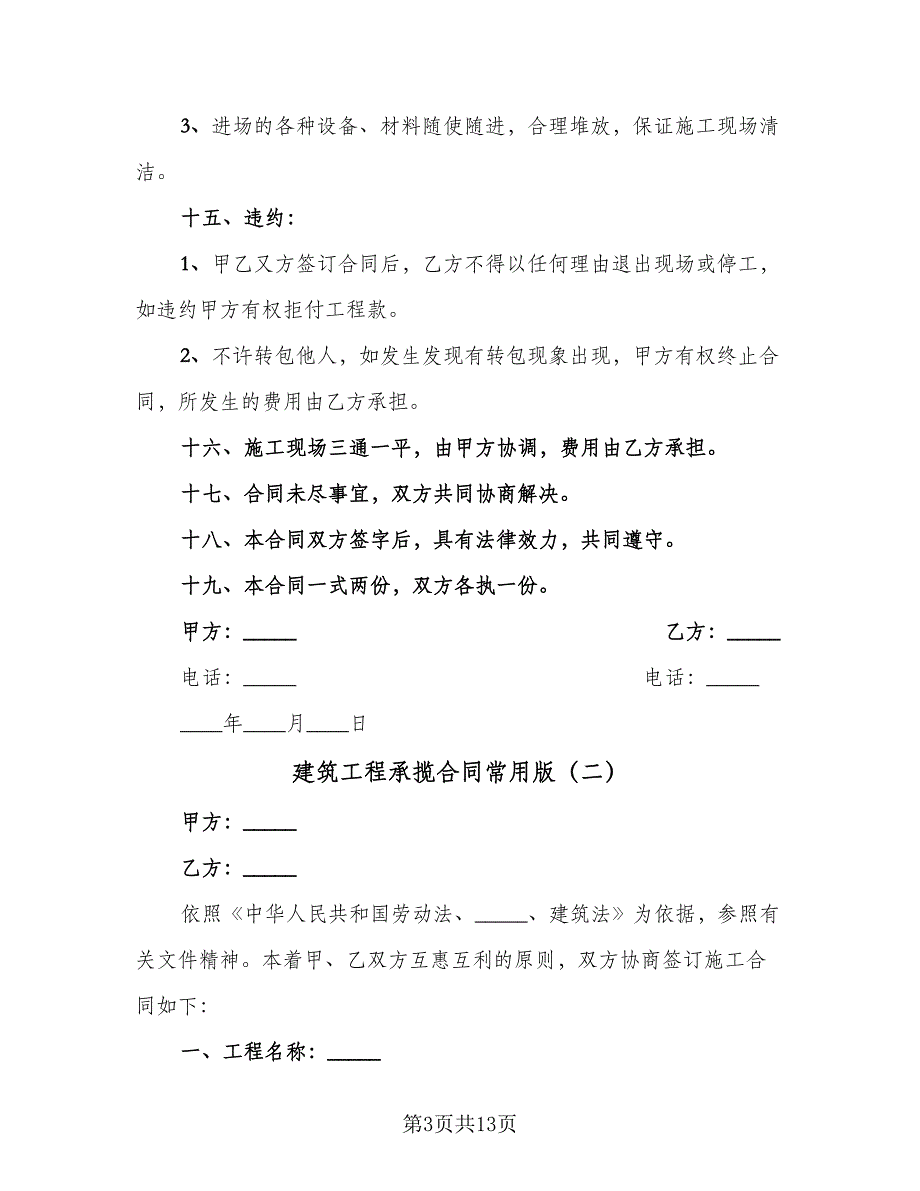 3、进场的各种设备、材料随使随进，合理堆放，保证施工现场清
洁。
十五、违约：
1、甲乙又方签订合同后，乙方不得以任何理由退出现场或停工，
如违约甲方有权拒付工程款。
2、不许转包他人，如发生发现有转包现象出现，甲方有权终止合
同，所发生的费用由乙方承担。
十六、施工现场三通一平，由甲方协调，费用由乙方承担。
十七、合同未尽事宜，双方共同协商解决。
十八、本合同双方签字后，具有法律效力，共同遵守。
十九、本合同一式两份，双方各执一份。
甲方：_____ 乙方：_____
电话：_____ 电话：_____
____年____月____日
建筑工程承揽合同常用版（二）
甲方：_____
乙方：_____
依照《中华人民共和国劳动法、_____、建筑法》为依据，参照有
关文件精神。本着甲、乙双方互惠互利的原则，双方协商签订施工合
同如下：
一、工程名称：_____
第3页共13页